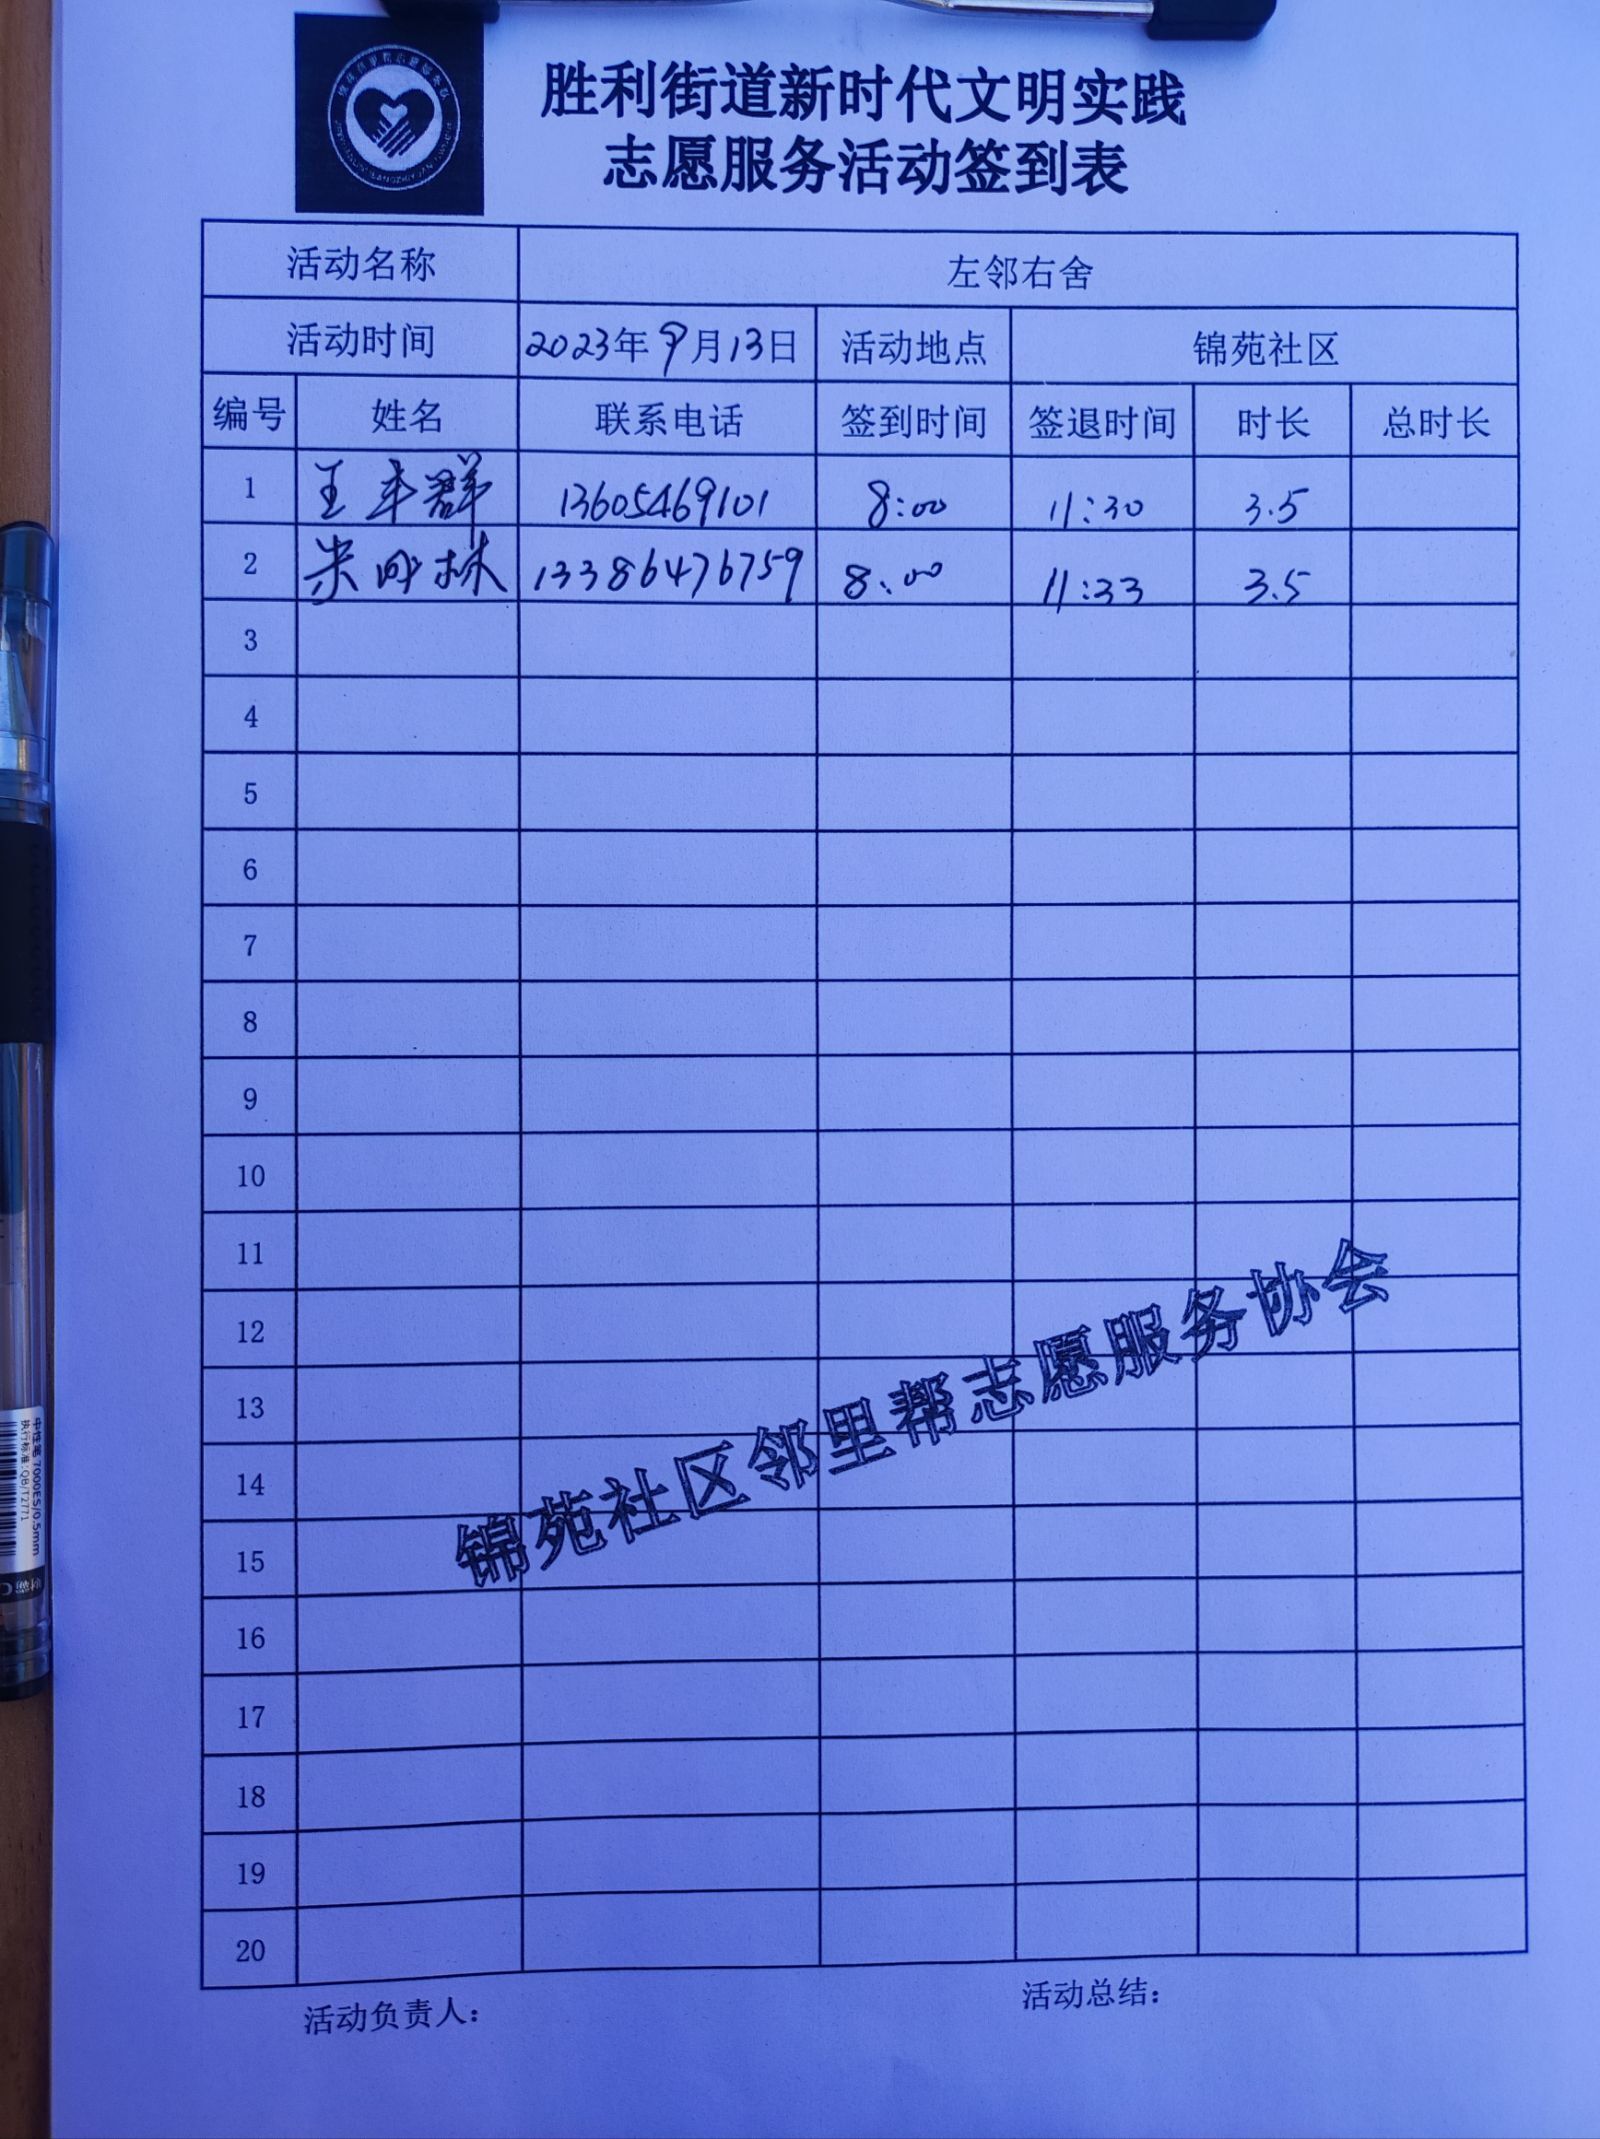 胜利街道新时代文明实践
志愿服务活动签到表
活动名称 左邻右舍
活动时间 2023年9月13日 活动地点 锦苑社区
编号 姓名 联系电话 签到时间 签退时间 时长 总时长
1 王丰群 13605469101 8:00 11:30 3.5
2 林 13386476759 8:00 11:33 3.5
3
4
5
6
7
8
9
10
11
12
13
14
15
16
17
18
19
20
锦苑社区邻里帮志愿服务协会
活动负责人: 活动总结:
中性笔 7000ES/0.5mm
执行标准:QB/T2771